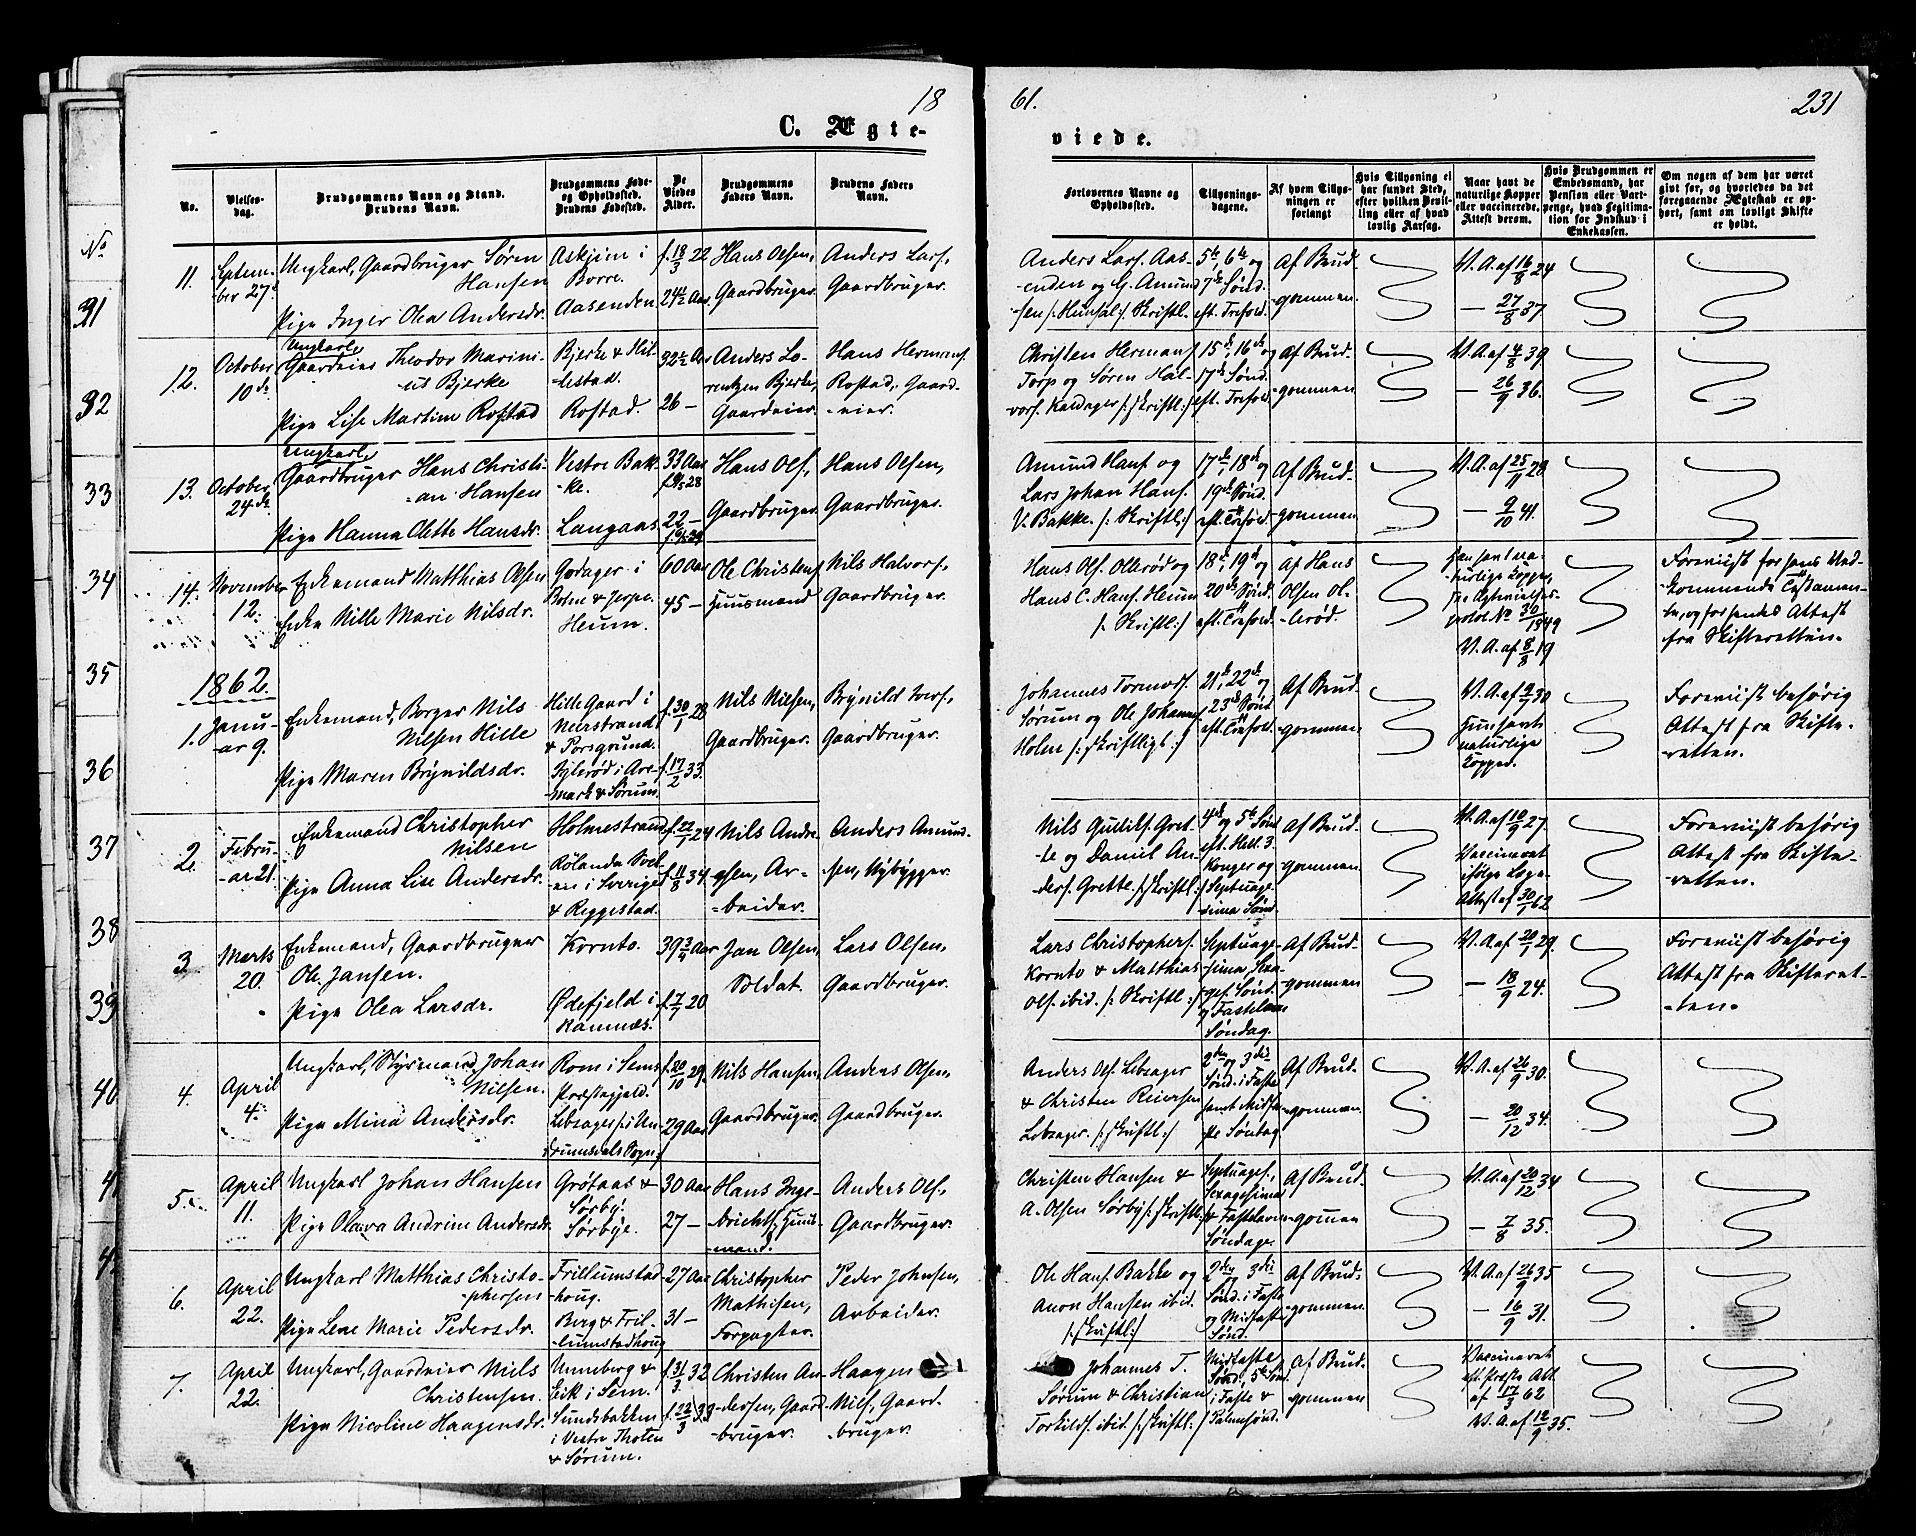 18
61.
231
C. Ægte-
viede.
No.
Vielses-
dag.
Brudgommens Navn og Stand.
Brudens Navn.
Brudgommens Føde-
og Opholdssted.
Brudens Fødested.
De
Viedes
Alder.
Brudgommens
Faders Navn.
Brudens Faders
Navn.
Forlovernes Navne og
Opholdssted.
Tillysnings-
dagene.
Af hvem Tillys-
ningen er
forlangt
Hvis Tillysning ei
har fundet Sted,
efter hvilken Bevil-
ling eller af hvad
lovlig Aarsag.
Naar havt de
naturlige Kopper
eller vaccinerede.
Attest derom.
Hvis Brudgommen er
Embedsmand, har
Pension eller Vart-
penge, hvad Legitima-
tion for Indskud i
Enkekassen.
Om nogen af dem har været
gift før, og hvorledes da det
foregaaende Ægteskab er op-
hørt, samt om lovligt Skifte
er holdt.
No
31
32
33
34
35
36
37
38
39
40
11.
Septem-
ber 27d
Ungkarl, Gaardbruger Søren
Hansen
Pige Inger Olea Andersdr.
Askjem i
Borre.
Aasenden
f. 18/3 22
24½ Aar
Hans Olsen,
Gaardbruger.
Anders Lars.,
Gaardbruger.
Anders Lars. Aas-
enden og G. Amund
-sen /: Skriftl.
5te, 6te og
7de Sønd.
eft. Trefold.
Af Brud-
gommen.
V. A. af 16/9 24
— 27/8 37
12.
October
10de
Ungkarl,
Gaardeier Theodor Marini-
us Bjerke
Pige Lise Martine Rostad
Bjerke & Hil-
lestad.
Rostad.
32½ Aar
26 —
Anders Lo-
rentzen Bjerke,
Gaardeier.
Hans Hermans.
Rostad, Gaard-
eier.
Christen Hermans.
Torp og Søren Hal-
vors. /: Skriftl. :/
15de, 16de og
17de Sønd.
eft. Trefold.
Af Brud-
gommen.
V. A. af 4/8 39
— 26/9 36.
13.
October
24de
Ungkarl,
Gaardbruger Hans Christi-
an Hansen
Pige Hanna Elette Hansdr.
Vestre Bak-
ke.
Langaas
33 Aar
22 —
Hans Ols.,
Gaardbruger.
Hans Olsen,
Gaardbruger.
Amund Hans. og
Lars Johan Hans.
V. Bakke. /: Skriftl. :/
17de, 18de og
19de Sønd.
eft. Trefold.
Af Brud-
gommen.
V. A. af 25/11 28
— 9/10 41.
14.
November
12.
Enkemand Matthias Olsen
Enke Nille Marie Nilsdr.
Godager i
Heum.
60 Aar
45 —
Ole Christens.
Huusmand
Nils Halvors.,
Gaardbruger.
Hans Ols. Ollerød og
Hans C. Hans. Heum
/: Skriftl. :/
18de, 19de og
20de Sønd.
eft. Trefold.
Af Hans
Olsen Ol-
lerød.
V. A. af 8/8 19
Foreviist for hans Ved-
kommende Testamen-
te, og for hendes Attest
fra Skifteretten.
1862.
1.
Janu-
ar 9.
Enkemand, Borger Nils
Nilsen Hille
Pige Maren Brynildsdr.
Hille Gaard i
Nerstrand
& Porsgrund.
Are-
mark & Sørum.
f. 30/7 28
f. 17/2 33.
Nils Nilsen,
Gaardbruger.
Brynild Ivers.,
Gaardbruger.
Johannes Tormods.
Sørum og Ole Johannes.
Holm /: Skriftligt :/
21de, 22de og
23de Sønd
eft. Trefold.
Af Brud-
gommen.
V. A. af 9/7 30
Hun havt
naturlige
Kopper.
Foreviist behørig
Attest fra Skifte-
retten.
2.
Febru-
ar 21.
Enkemand Christopher
Nilsen
Pige Anna Lise Andersdr.
Holmestrand
i Sverige
& Reggestad.
f. 22/7 24
f. 11/8 34
Nils Andre-
asen, Ar-
beider.
Anders Amund-
sen, Nybygger.
Nils Gullils. Gret-
te og Daniel An-
ders. Grette. /: Skriftl. :/
4de og 5te Sønd
eft. Hell. 3.
Konger og
Septuage-
sima Sønd.
Af Brud-
gommen.
V. A. af 10/9 27.
Vaccineret
ifølge Læge-
Attest af 30/1 62
Foreviist behørig
Attest fra Skifte-
retten.
3
Marts
20.
Enkemand, Gaardbruger
Ole Jansen.
Pige Olea Larsdr.
Kornto.
Ødefjeld i
Ramnæs.
39¾ Aar
f. 7/7 20
Jan Olsen,
Soldat.
Lars Olsen,
Gaardbruger.
Lars Christophers.
Kornto & Matthias
Ols. ibid. /: Skriftl. :/
Septuage-
sima, Sexa-
ges. Sønd.
og Fastelavns
Søndag.
Af Brud-
gommen
V. A. af 20/7 29.
— 18/9 24.
Foreviist behørig
Attest fra Skifteret-
ten.
4.
April
4.
Ungkarl, Styrmand Johan
Nilsen.
Pige Mina Andersdr.
Rom i Sems
Præstegjeld.
f. 20/10 29.
29 Aar
Nils Hansen,
Gaardbruger.
Anders Olsen,
Gaardbruger.
Anders Ols. Lebsager
& Christen Reiersen
Lebsager. /: Skriftl. :/
2den og 3die
Sønd. i Faste
samt Midfa-
ste Søndag
Af Brud-
gommen.
V. A. af 26/9 30.
— 20/12 34.
5.
April
11.
Ungkarl Johan Hansen
Pige Olava Andrine Andersdr.
Grøtaas &
Sørby.
Sørbye.
30 Aar
27 —
Hans Inge-
brichts., Huus-
mand.
Anders Ols.,
Gaardbruger.
Christen Hansen &
A. Olsen Sørby /: Skriftl. :/
Septuages.,
Sexagesima
& Fastelavns
Søndage.
Af Brud-
gommen
V. A. af 20/12 34
— 7/8 35.
6.
April
22.
Ungkarl Matthias Christo-
phersen
Pige Lene Marie Pedersdr.
Frillumstad-
houg.
Berg & Fril-
lumstadhoug
27 Aar
31 —
Christopher
Mathisen,
Forpagter.
Peder Johnsen,
Arbeider.
Ole Hans. Bakke og
Anon Hansen ibid.
/: Skriftl. :/
2den og 3die
Sønd. i Faste
og Midfaste
Sønd.
Af Brud-
gommen.
V. A. af 26/9 35
— 16/9 31.
7.
April
22.
Ungkarl, Gaardeier Niels
Christensen.
Pige Nicoline Haagensdr.
Unneberg &
Eik i Sem.
Sundsbakken
i Vestre Thoten
& Sørum.
f. 31/3 32
f. 22/3 33
Christen An-
dersen, Gaard-
bruger.
Haagen
Nils., Gaard-
bruger.
Johannes T.
Sørum & Christian
Torkilds. ibid. /: Skriftl. :/
Midfaste
Sønd., 5te Sønd.
i Faste &
Palmesønd.
Af Brud-
gommen
Vaccineret
eft. Præste Att.
af 17/3 62
V. A. af 12/9 35.